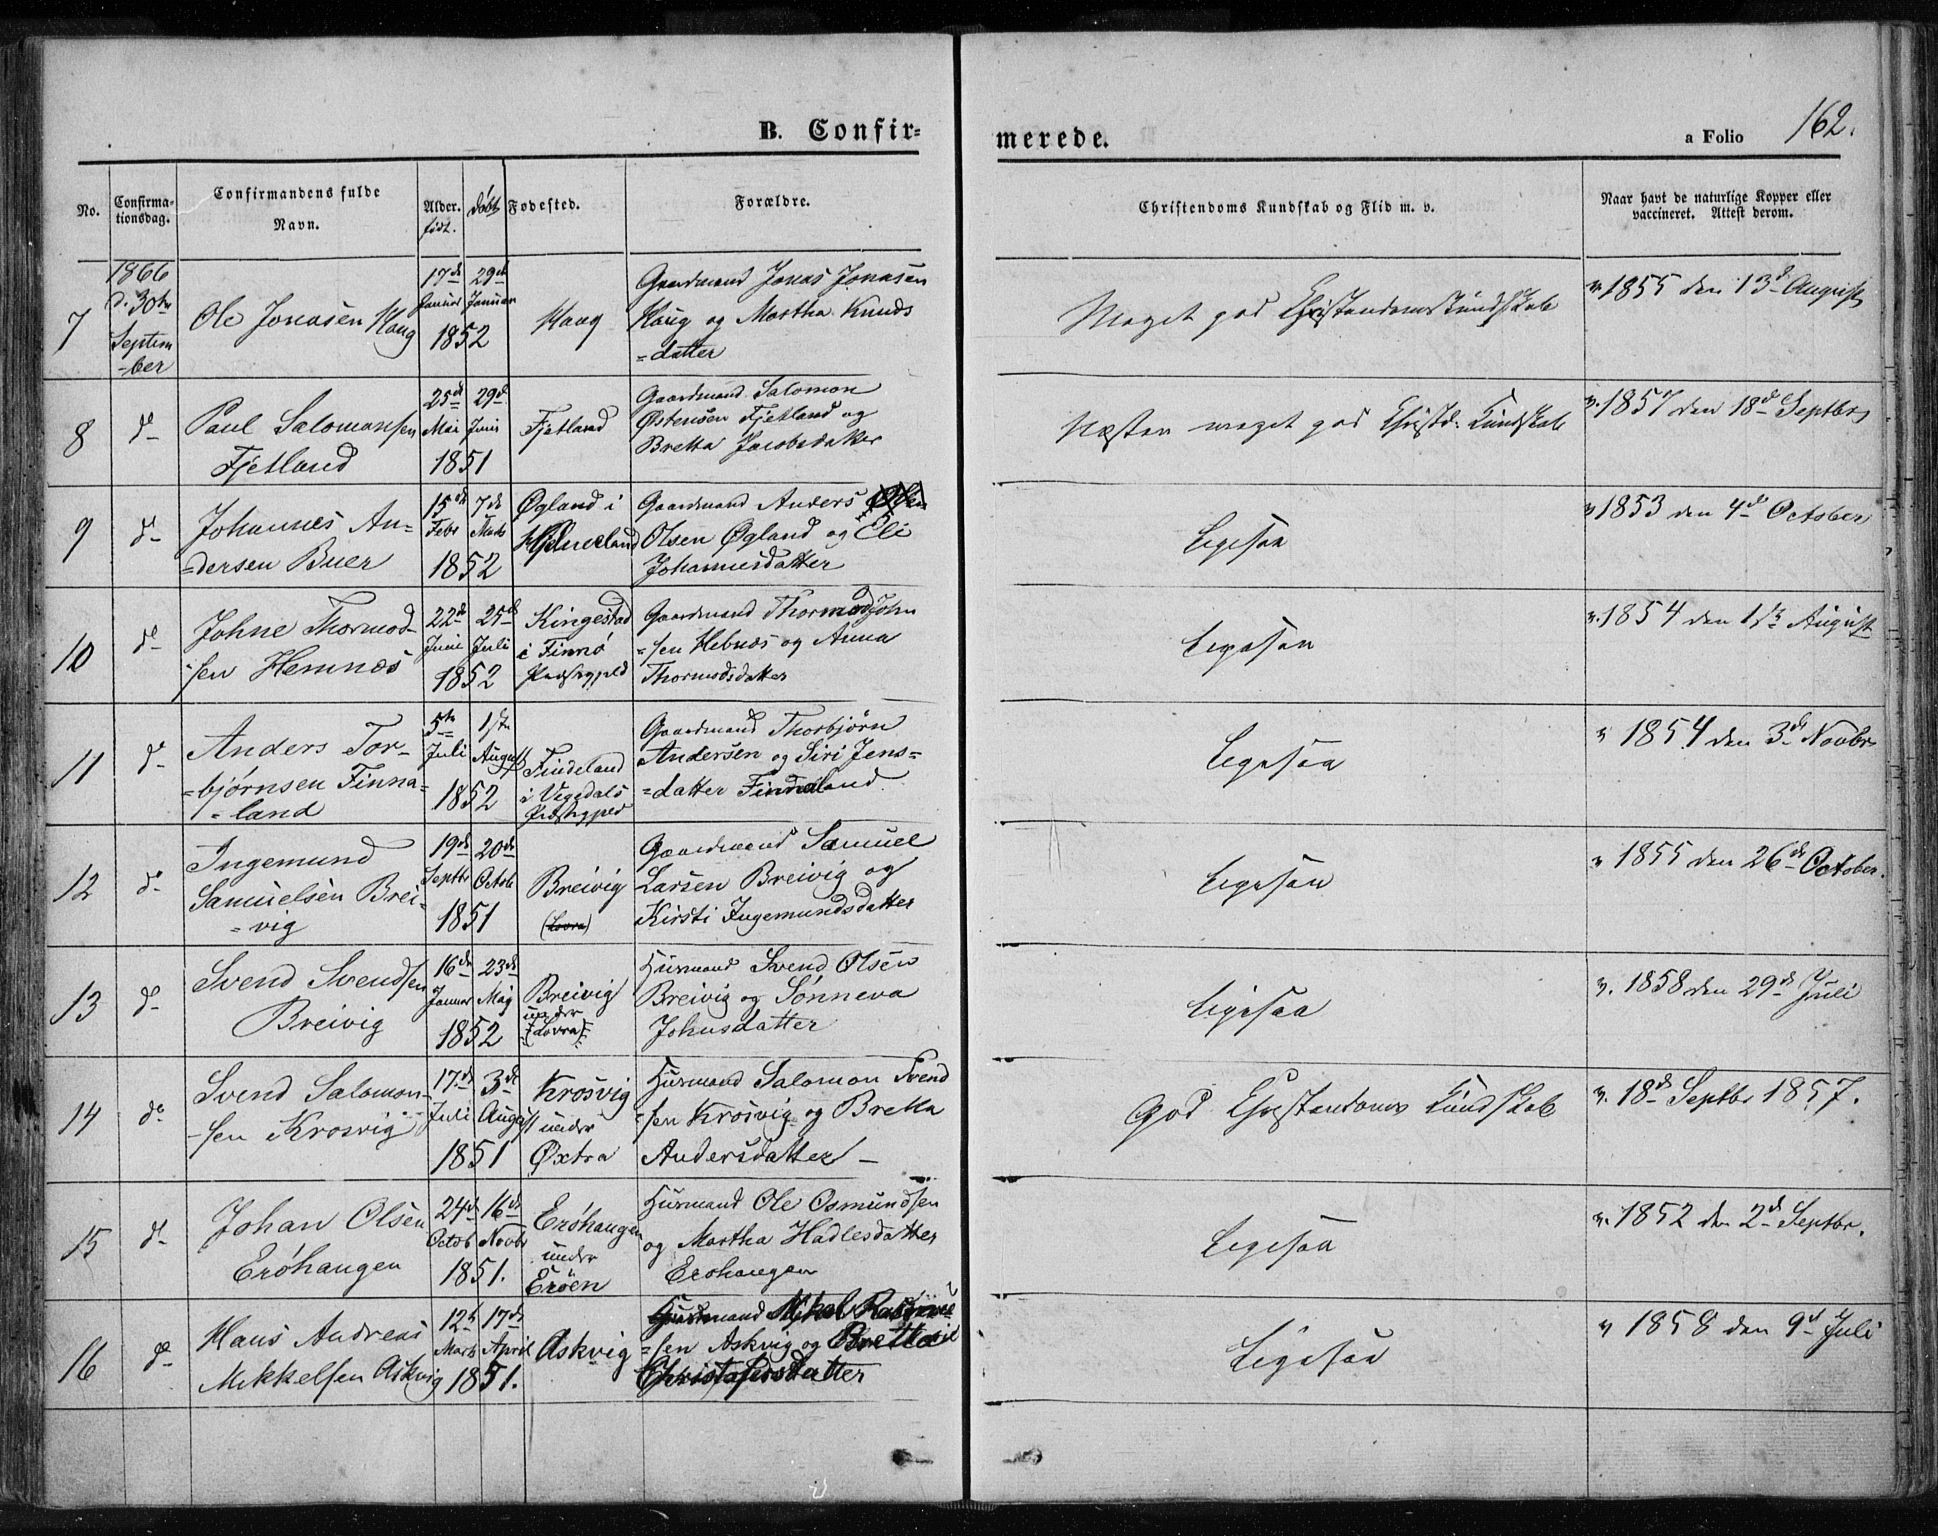 B. Confir=
merede.
a Folio 162.
No.
Confirma-
tionsdag.
Confirmandens fulde
Navn.
Alder.
født.
døbt
Fødested.
Forældre.
Christendoms Kundskab og Flid m. v.
Naar havt de naturlige Kopper eller
vaccineret. Attest derom.
7
1866
d. 30te
Septem
-ber
Ole Jonasen Haug
17de
Januar
29de
Januar
1852
Haug
Gaardmand Jonas Jonasen
Haug og Martha Knuds
=datter
Meget god Christendomskundskab
v. 1855 den 13de August
8
do
Paul Salomonsen
Fjetland
25de
Mai
29de
Juni
1851
Fjetland
Gaardmand Salomon
Østensen Fjetland og
Bretta Jacobsdatter
Næsten meget god Christd. Kundskab
v. 1857 den 18de Septbr
9
do
Johannes An-
=dersen Buer
15de
Febr
7de
Marts
1852
Øgland i
Hjelmeland
Gaardmand Anders
Olsen Øgland og Eli
Johannesdatter
Ligesaa
v 1853 den 4de October
10
do
Johne Thormod-
sen Hemnæs
22de
Juni
25de
Juli
1852
Kingestad
i Finnø
Præstegjeld
Gaardmand Thormod John
=sen Hebnæs og Anna
Thormodsdatter
Ligesaa
v. 1854 den 1ste August
11
do
Anders Tor-
=bjørnsen Finna-
=land
5te
Juli
1ste
August
1852
Findeland
i Vigedals
Præstegjeld
Gaardmand Thorbjørn
Andersen og Siri Jens-
=datter Findeland.
Ligesaa
v 1854 den 3de Novbr
12
do
Ingemund
Samuelsen Brei-
=vig
19de
Septbr
20de
Octob
1851
Breivig
(Lovra)
Gaardmand Samuel
Larsen Breivig og
Kirsti Ingemundsdatter
Ligesaa
v 1855 den 26de October.
13
do
Svend Svendsen
Breivig
16de
Januar
23de
Maj
1852
Breivig
under
(Lovra)
Husmand Svend Olsen
Breivig og Sønneva
Johnsdatter
Ligesaa
v. 1858 den 29de Juli
14
do
Svend Salomon-
-sen Krosvig
17de
Juli
3de
August
1851
Krosvig
under
Øxtra
Husmand Salomon Svend
=sen Krosvig og Bretta
Andersdatter –
God Christendoms Kundskab
v. 18de Septbr 1857.
15
do
Johan Olsen
Erøhaugen
24de
Octob
16de
Novbr
1851.
Erøhaugen
under
Erøen
Husmand Ole Osmundsen
og Martha Hadlesdatter
Erøhaugen
Ligesaa
v. 1852 den 2de Septbr.
16
do
Hans Andreas
Mikkelsen Askvig
12te
Marts
17de
April
1851.
Askvig
Husmand Mikal Rasmus
=sen Askvig og Bretta
Christophersdatter
Ligesaa
v 1858 den 9de Juli